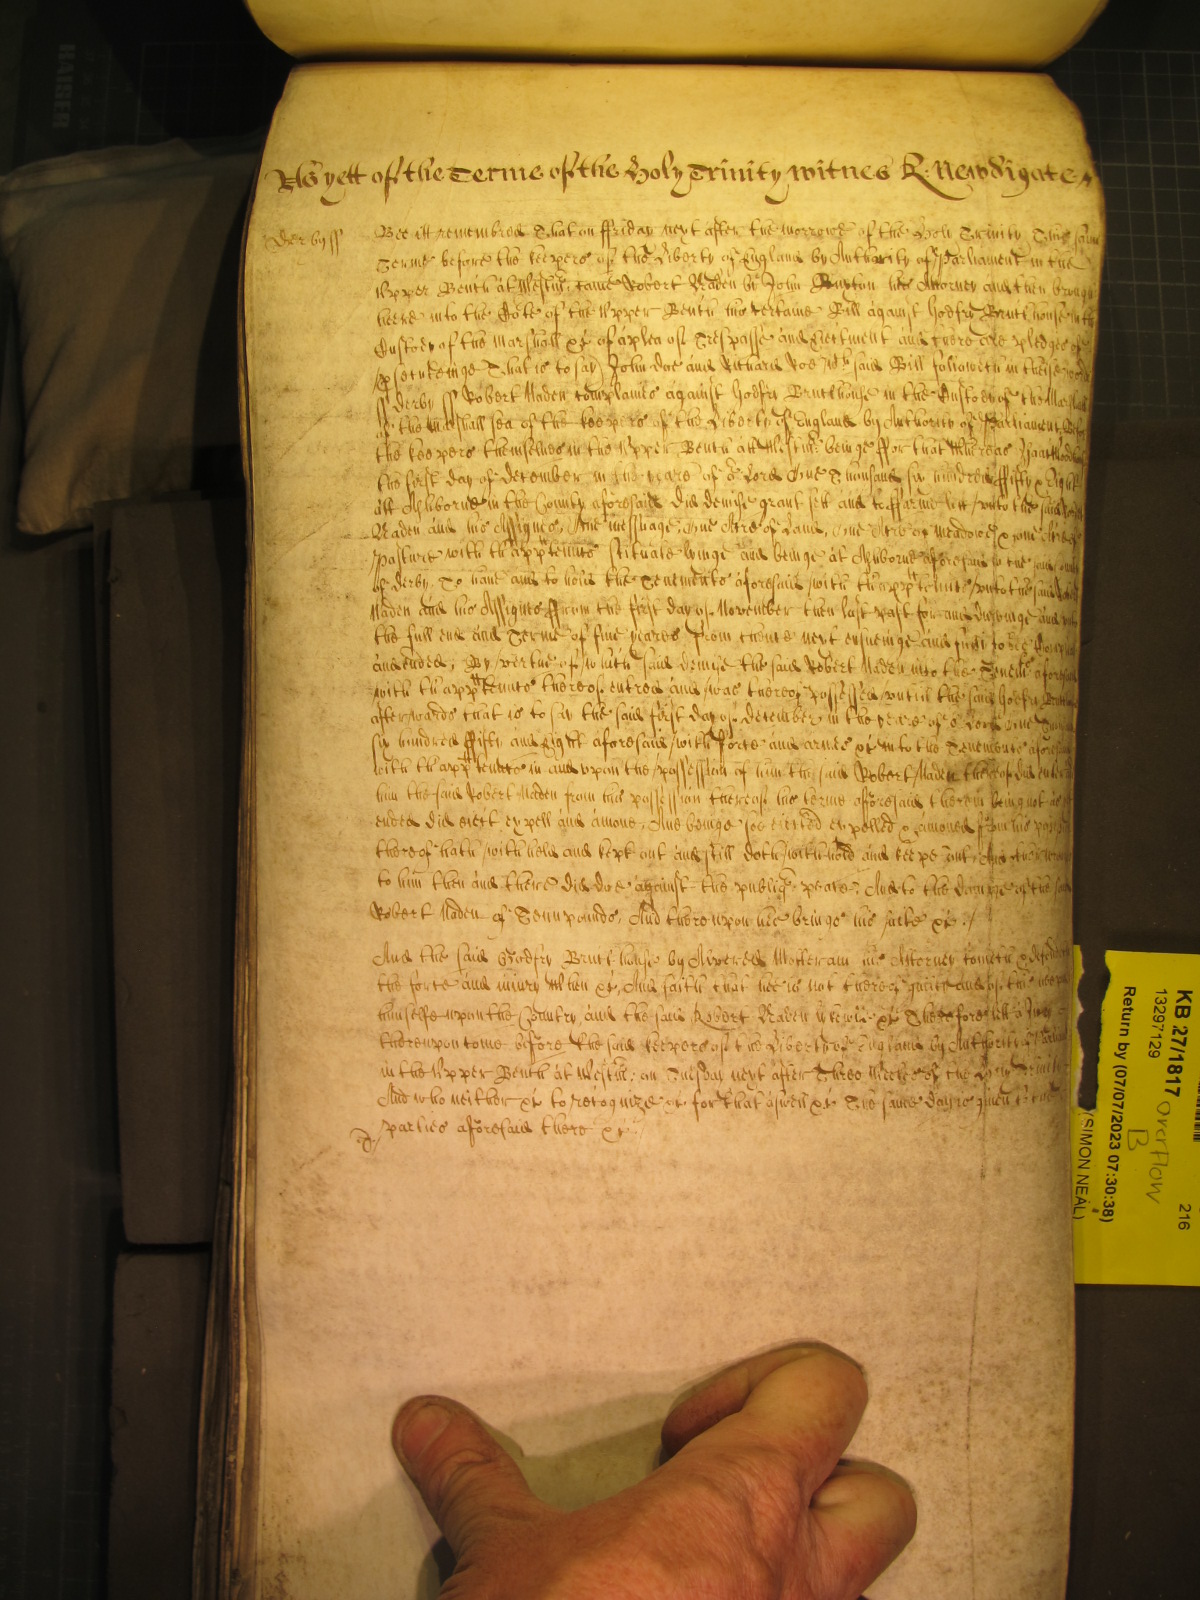 As yett of the Terme of the Holy Trinity witnes R: Newdigate
Derby ss
Bee itt remembred That on ffriday next after the morrowe of the Holy Trinity This same
Terme before the keepers of the Liberty of England by Authority of Parliament in the
Upper Bench at Westmr came Robert Maden by John his Attorney and then brought
heere into the Cote of the Upper Bench his certaine Bill against Godfry Brutthouse in the
Custody of the Marshall &c of a plea of Trespasse and Eiectment and there are pledges of
prosecuteinge That is to say John Doe and Richard Roe wch said Bill followeth in theise words
ss Derby ss Robert Maden complaines against Godfry Brutthouse in the Custody of the Marshall
of the Marshallsea of the keepers of the Liberty of England by Authority of Parliament before
the keepers themselves in the Upper Bench att Westmr beinge ffor that Whereas Isaac
the first day of December in the yeare of or Lord One Thousand six hundred ffifty & Eight
att Ashborne in the County aforesaid did demise grant sett and to ffarme lett unto the said Robert
Maden and his Assignes One messuage, One Acre of Land, One Acre of meadowe & one Acre of
pasture with th'appɾtennces scituate lyinge and beinge at Ashborne aforesaid in the said County
of Derby, To have and to hold the Tenements aforesaid with th'appɾtennces unto the said Robert
Maden and his Assignes ffrom the first day of November then last past for and dureinge and unto
the full end and Terme of five yeares from thence next ensueinge and fully to bee Compleate
and ended, By vertue of which said demise the said Robert Maden into the Tenemts aforesaid
with th'appɾtennces thereof entred and was thereof possessed untill the said Godfry Brutthouse
afterwards that is to say the said first day of December in the yeare of or Lord One Thousand
six hundred ffifty and Eight aforesaid with force and armes &c into the Tenements aforesaid
with th'appɾtennces in and upon the possession of him the said Robert Maden thereof did enter and
him the said Robert Maden from his possession thereof his terme aforesaid therein being not as yet
ended did eiect expell and amove, And beinge soe eiected expelled & amoved from his possession
thereof hath withheld and kept out and still doth withhold and keepe out, And other wrongs
to him then and there did doe against the publique peace, And to the damage of the said
Robert Maden of Tenn pounds, And thereupon hee brings his suite &c /
And the said Godfry Brutthouse by Motteram his Attorney cometh & defendeth
the force and iniury When &c, And saith that hee is not thereof guilty and of this hee putts
himselfe upon the Cuntry and the said Robert Maden likewise &c Therefore lett a Jury
thereupon come before the said keepers of the Liberty of England by Authority of Parliament
in the Upper Bench at Westmr on Tuesday next after Three Weekes of the Holy Trinity
And who neither &c to recognize &c for that aswell &c The same day is given to the
parties aforesaid there &c /
KB 27/1817
216
13297129
overflow
B
Return by (07/07/2023 07:30:38)
(SIMON NEAL)